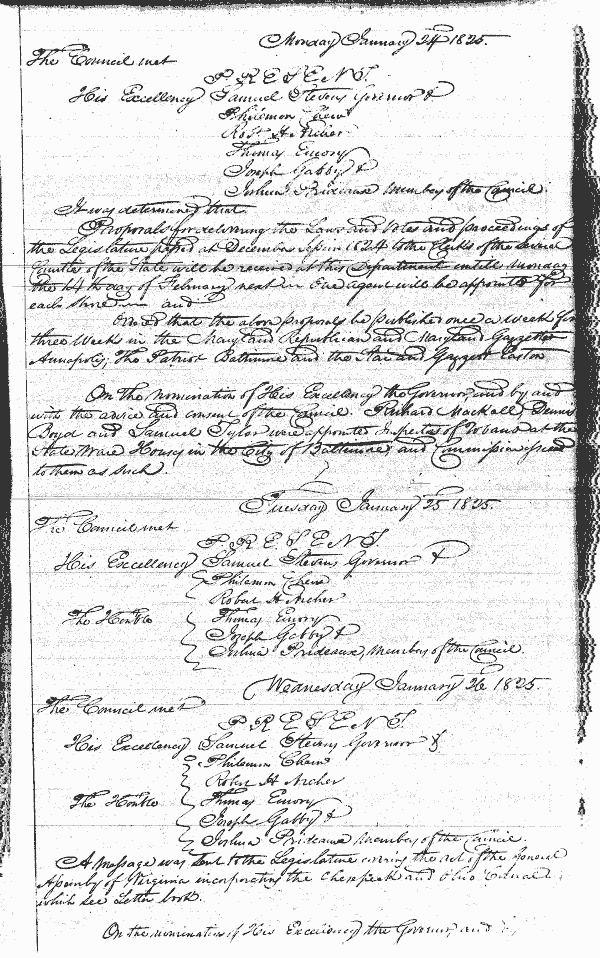 Monday January 24th 1825.
The Council met
PRESENT.
His Excellency Samuel Stevens Governor &
Philemon Chew
Robt H Archer
Thomas Emory
Joseph Gabby &
Joshua Prideaux members of the Council.
It was determined that
Proposals for delivering the Laws and Votes and proceedings of
the Legislature passed at December Session 1824 to the Clerks of the several
Counties of the State will be received at this Department until Monday
the 14th day of February next in One agent will be appointed for
each Shore and
Ordered that the above proposals be published once a Week for
three Weeks in the Maryland Republican and Maryland Gazette
Annapolis; The Patriot Baltimore and the Star and Gazette Easton
On the nomination of His Excellency the Governor, and by and
with the advice and consent of the Council. Richard Mackall, Dennis
Boyd and Samuel Tylor were appointed Inspectors of Tobacco at the
State Ware House, in the City of Baltimore, and Commission issued
to them as such.
Tuesday January 25 1825.
The Council met
PRESENT
His Excellency Samuel Stevens Governor &
Philemon Chew
Robert H Archer
The Honble Thomas Emory
Joseph Gabby &
Joshua Prideaux, members of the Council.
Wednesday January 26 1825.
The Council met
PRESENT.
His Excellency Samuel Stevens Governor &
Philemon Chew
Robert H Archer
The Honble Thomas Emory
Joseph Gabby &
Joshua Prideaux members of the Council.
A message was sent to the Legislature the act of the General
Assembly of Virginia incorporating the Chesapeak and Ohio Canal
which see Letter book.
On the nomination of His Excellency the Governor, and